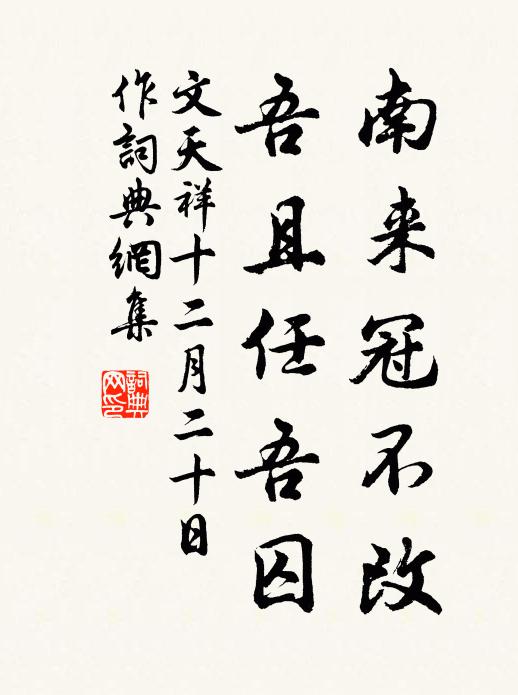 南来冠不改
吾且任吾囚
文天祥十二月二十日
作詞典網集
詞典
网印